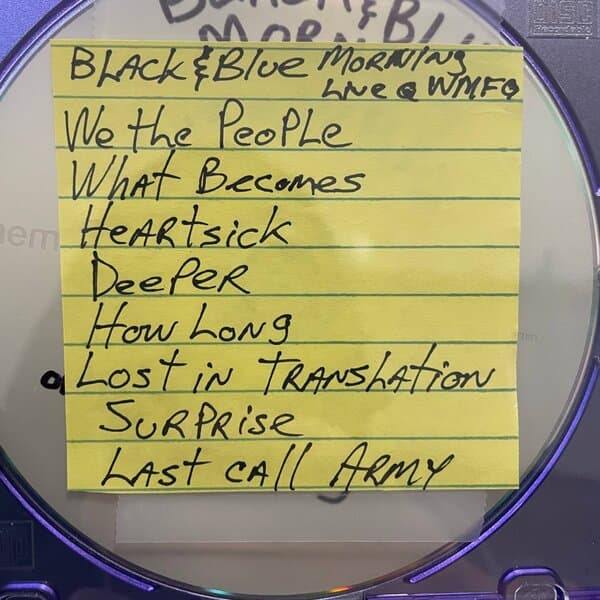 BLACK & Blue
MORN
BLACK & Blue MORNING
Live @ WMFO
We the PeoPLe
WHAT Becomes
HeARtsick
DeePeR
How LonG
Lost iN TRANSLATioN
SuRPRise
LAST cAll ARMY